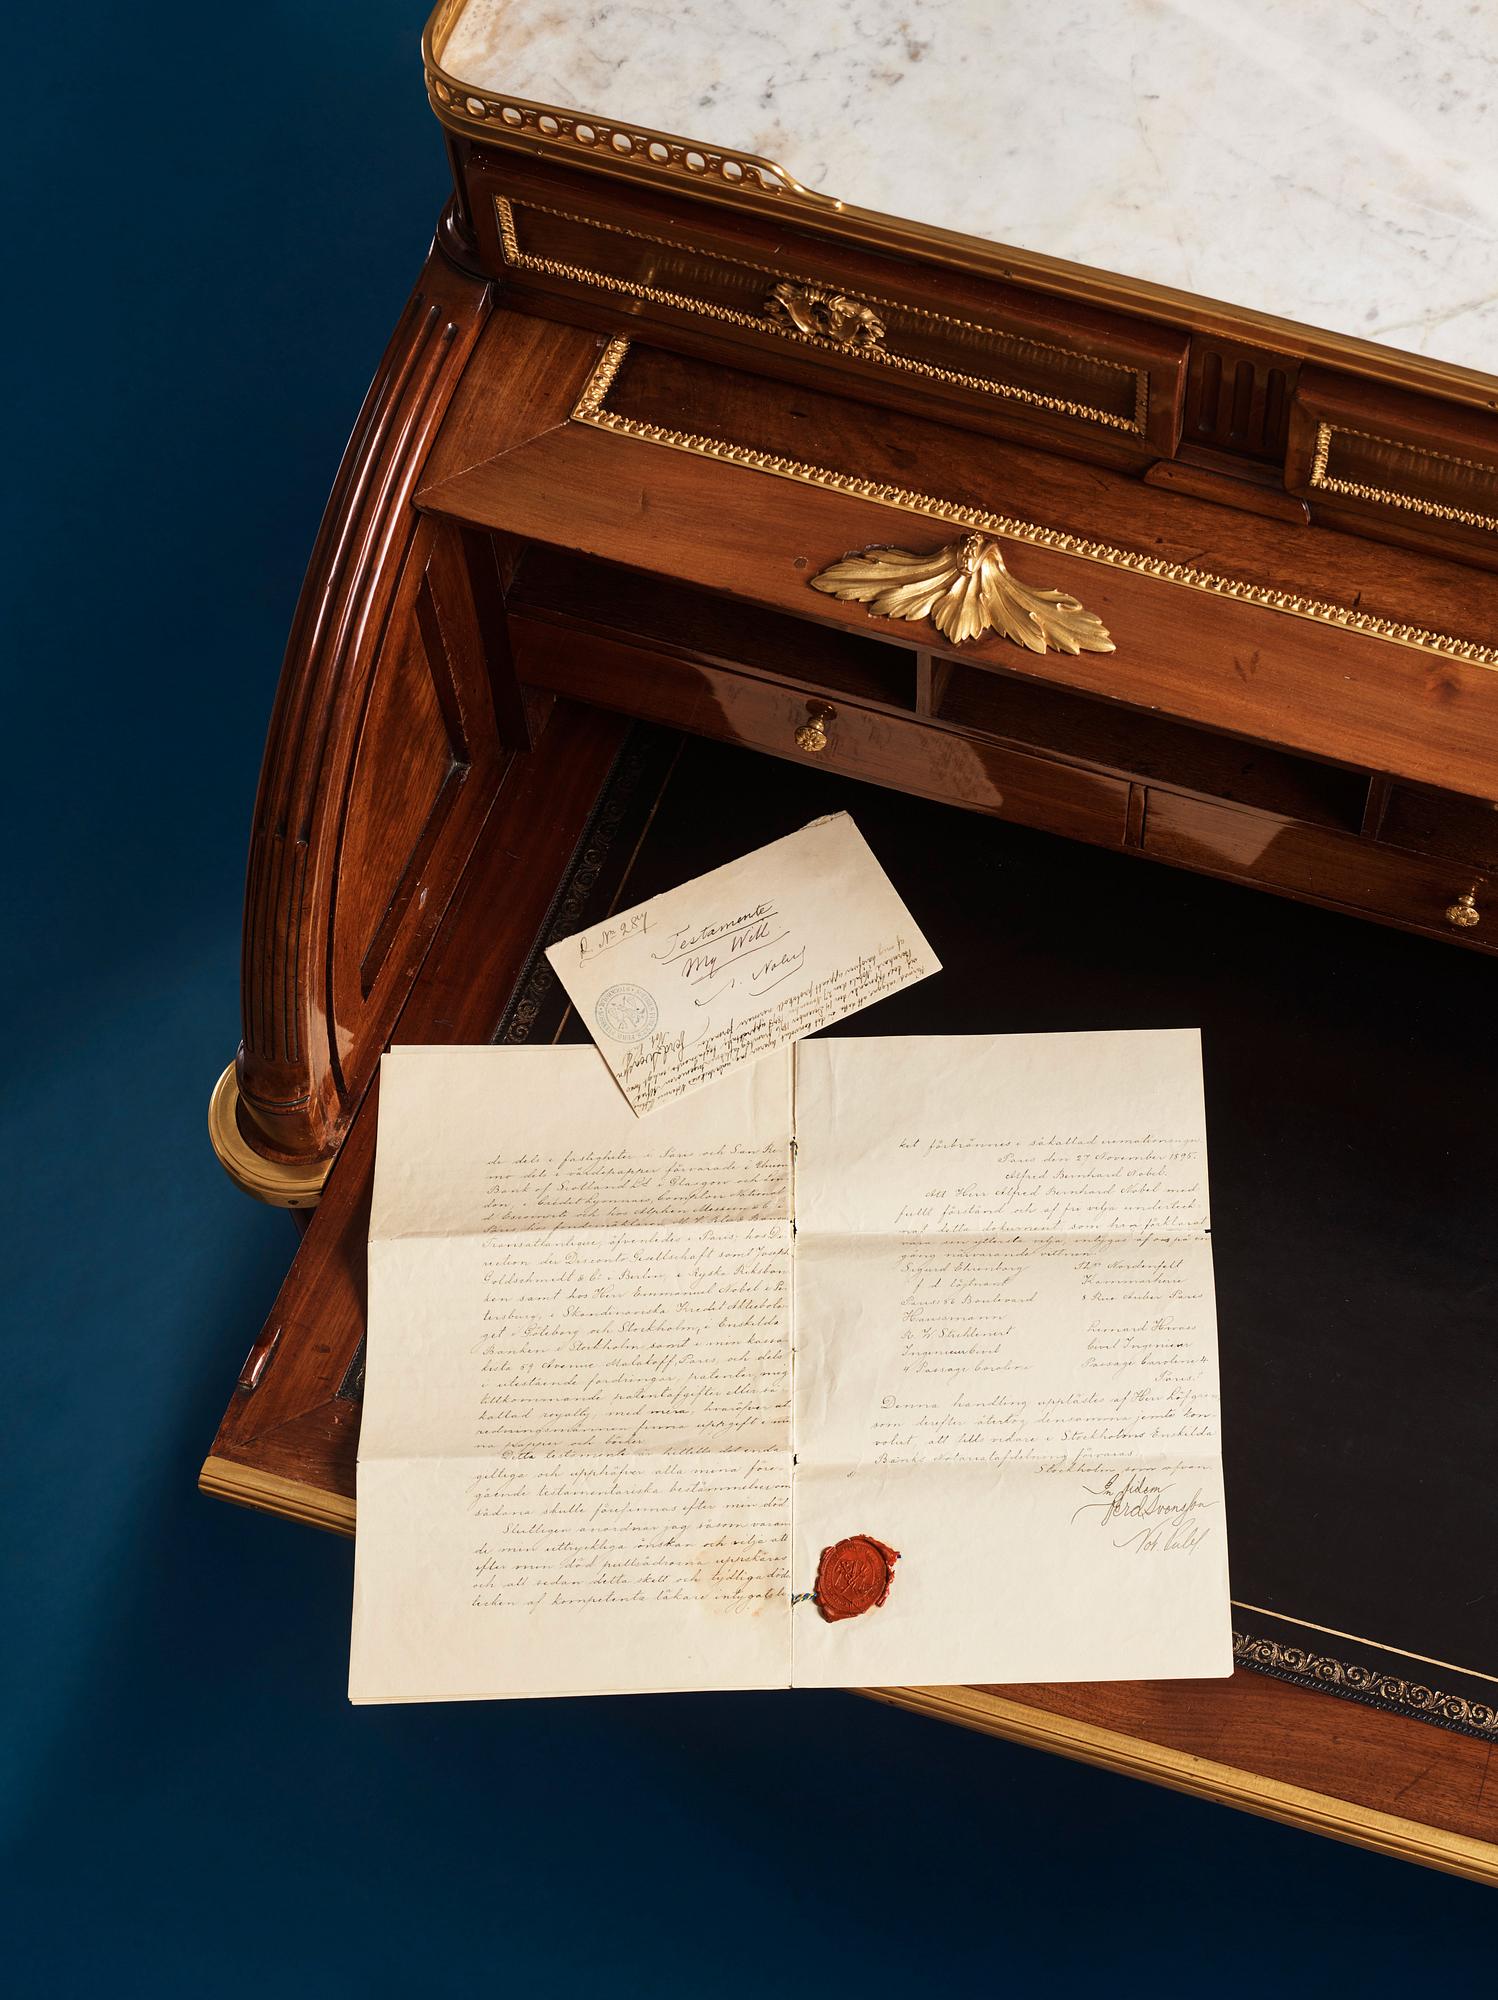 R. No 284
Testamente
My Will
A. Nobel
de dels i fastigheter i Paris och San Re-
mo dels i värdepapper förvarade i Union
Bank of Scotland Ld i Glasgow och Lon-
don, i Crédit Lyonnais, Comptoir National
d'Escompte och hos Alphen Messin & Co i
Paris hos fondmäklaren M. V. Peter & Banque
Transatlantique, äfvenledes i Paris; hos Di-
rection der Disconto Gesellschaft samt Joseph
Goldschmidt & Co i Berlin, i Ryska Riksban-
ken samt hos Herr Emmanuel Nobel i Pe-
tersburg, i Skandinaviska Kredit Aktiebola-
get i Göteborg och Stockholm, i Enskilda
Banken i Stockholm samt i min kassa-
kista 59 Avenue Malakoff, Paris, och dels
i utestående fordringar, patenter, mig
tillkommande patentafgifter eller så
kallad royalty, med mera, hvaröfver ut-
redningsmännen finna uppgift i mi-
na papper och böcker.
Detta testamente är hittills det enda
giltiga och upphäfver alla mina före-
gående testamentariska bestämmelser om
sådana skulle förefinnas efter min död
Slutligen anordnar jag såsom varan-
de min uttryckliga önskan och vilja att
efter min död pulsådrorna uppskäras
och att sedan detta skett och tydliga döds-
tecken af kompetenta läkare intygats li-
ket förbrännes i såkallad cremationsugn
Paris den 27 November 1895.
Alfred Bernhard Nobel.
Att Herr Alfred Bernhard Nobel med
fullt förstånd och af fri vilja underteck-
nat detta dokument som han förklarat
vara sin yttersta vilja, intygas af oss på en
gång närvarande vittnen:
Sigurd Ehrenborg Ths Nordenfelt
f d löjtnant Kammarherre
Paris: 86 Boulevard 8 Rue Auber Paris
Haussmann
R. W. Strehlenert Leonard Hwass
Ingenieur Civil Civil Ingeniör
4 Passage Caroline Passage Caroline 4
Paris.
Denna handling upplästes af Herr Höfgren
som derefter återtog densamma jemte kon-
volut, att tills vidare i Stockholms Enskilda
Banks Notariatafdelning förvaras
Stockholm som ofvan.
In fidem
Not. Publ